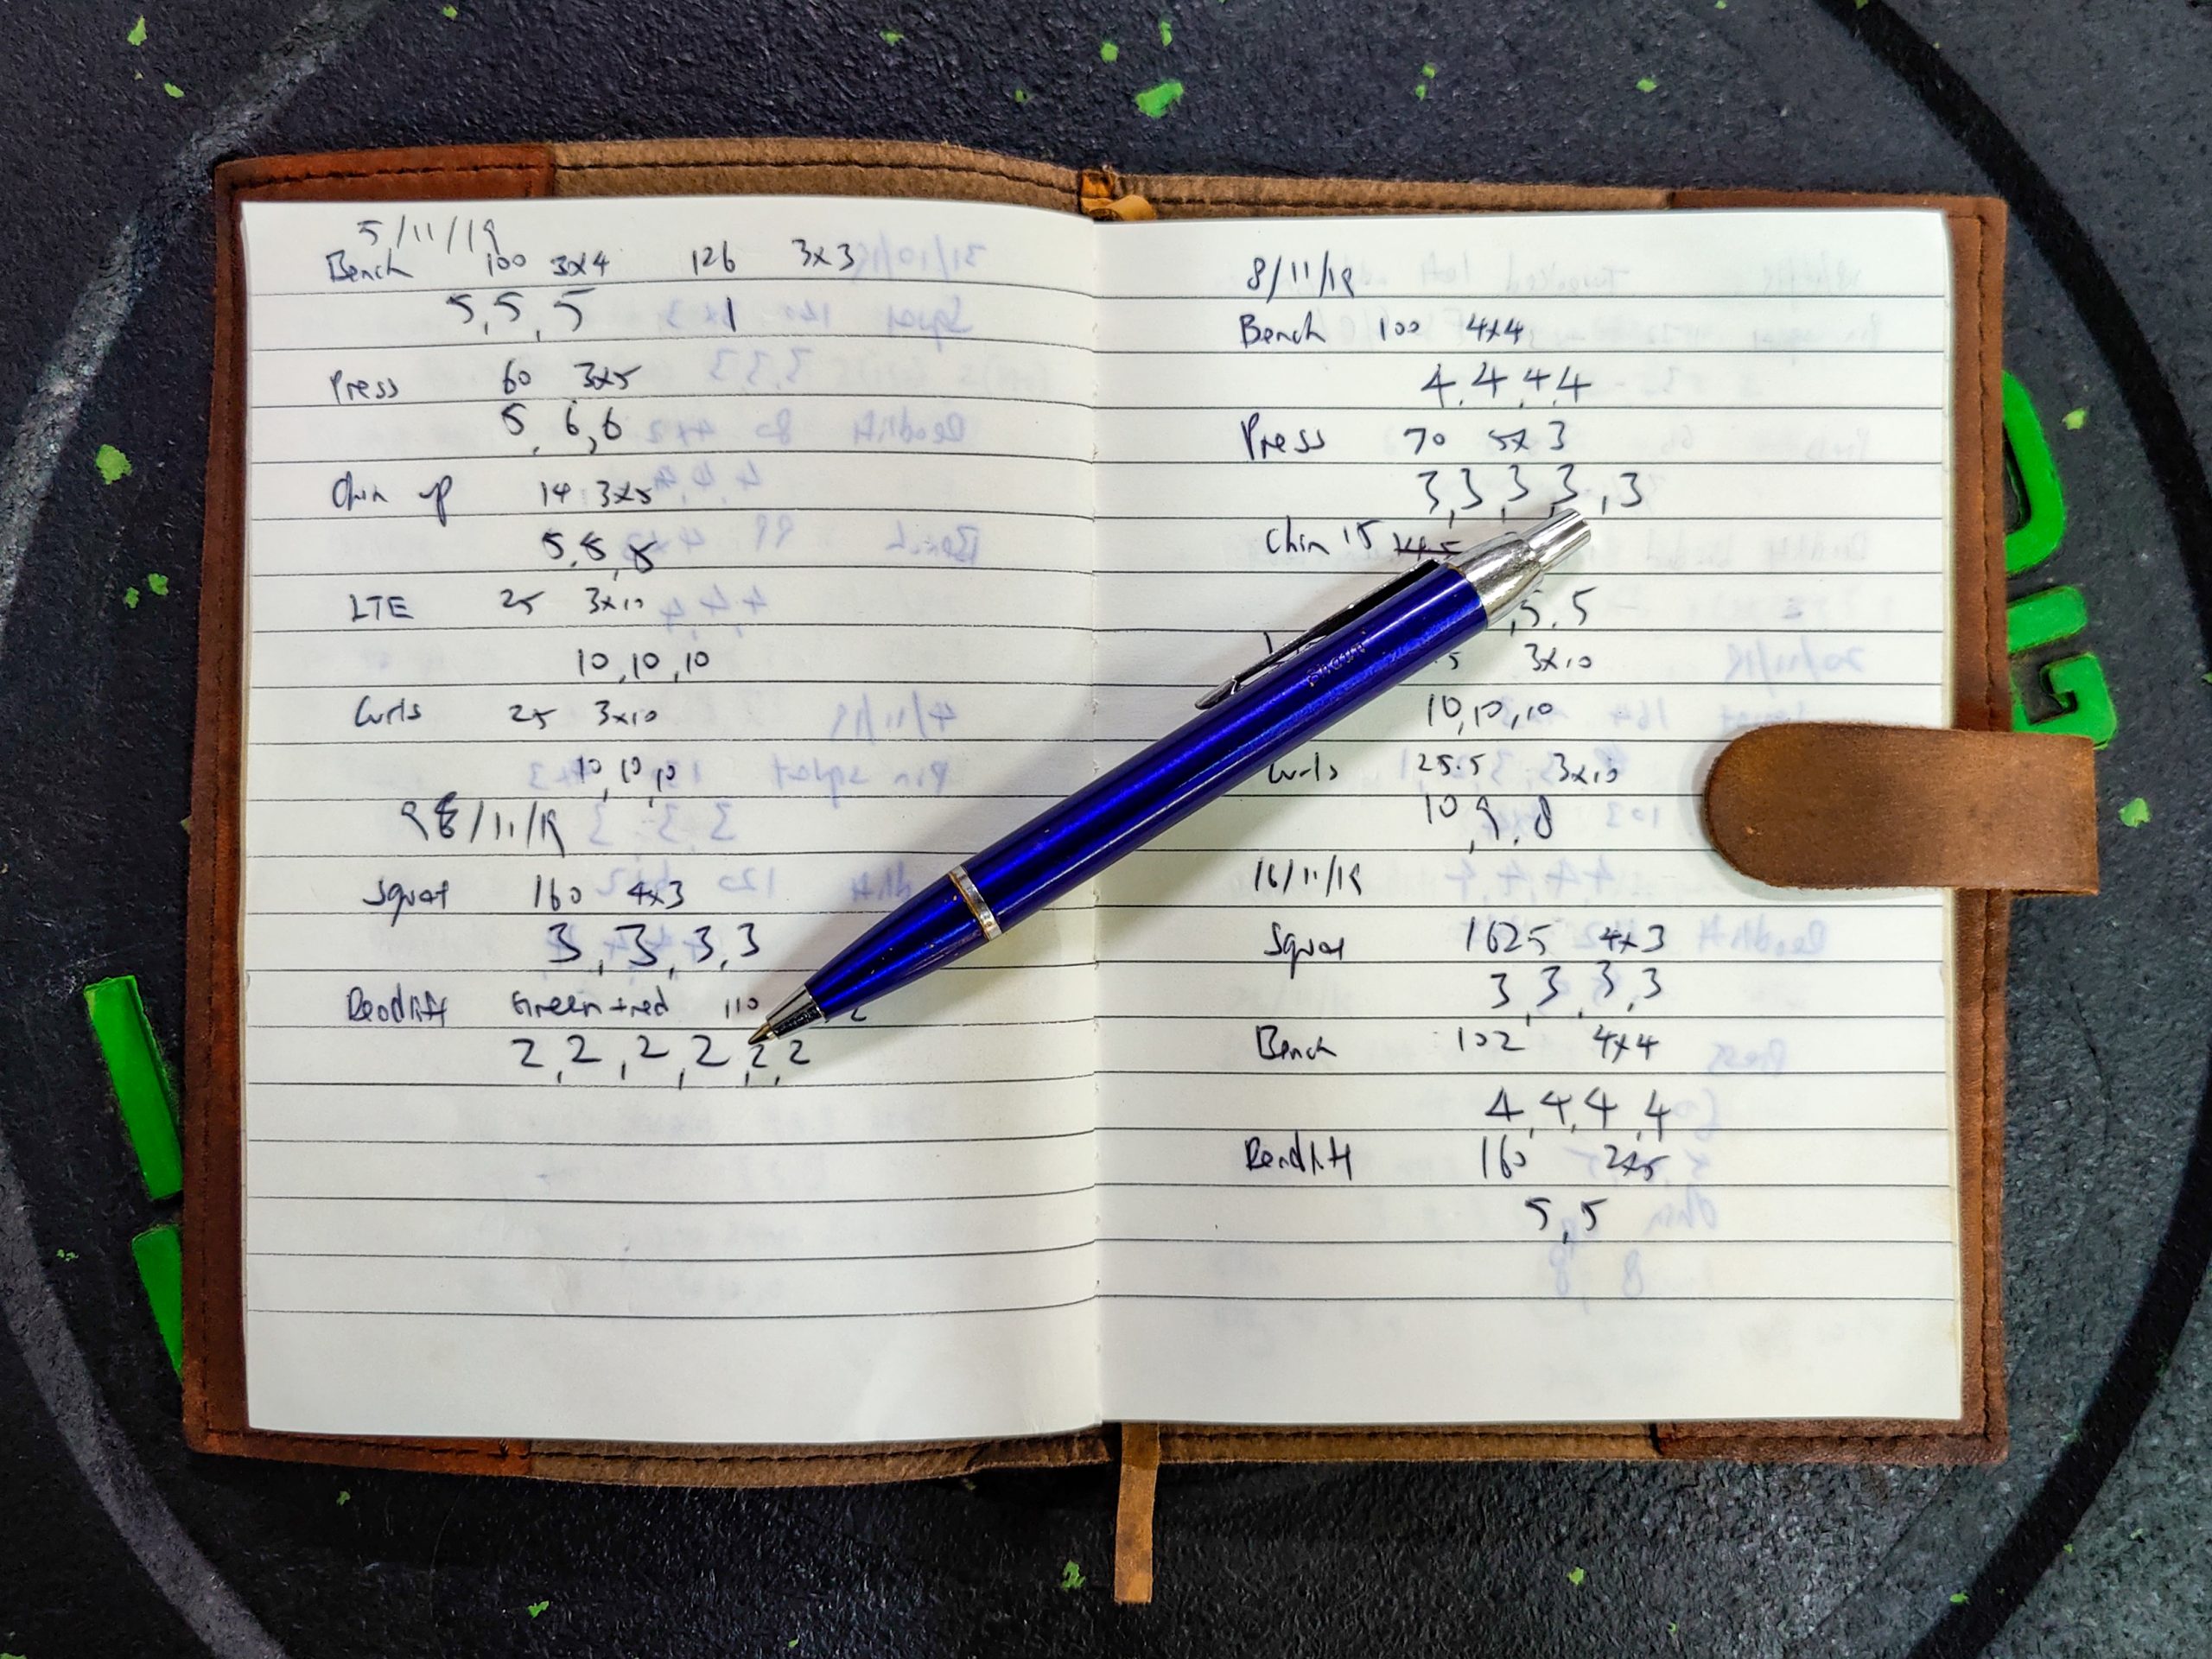 5/11/19
Bench 100 3x4 126 3x3
5,5,5 1
Press 60 3x5
5,6,6
Chin up 14 3x5
5,5,8
LTE 25 3x10
10,10,10
Curls 25 3x10
10,10,10
/11/19
Squat 160 4x3
3,3,3,3
Deadlift Green+red 110
2,2,2,2,2,2
8/11/19
Bench 100 4x4
4,4,4,4
Press 70 5x3
3,3,3,3,3
Chin 15
,5,5
5 3x10
10,10,10
Curls 25.5 3x10
10,9,8
16/11/19
Squat 162.5 4x3
3,3,3,3
Bench 102 4x4
4,4,4,4
Deadlift 160 2x5
5,5